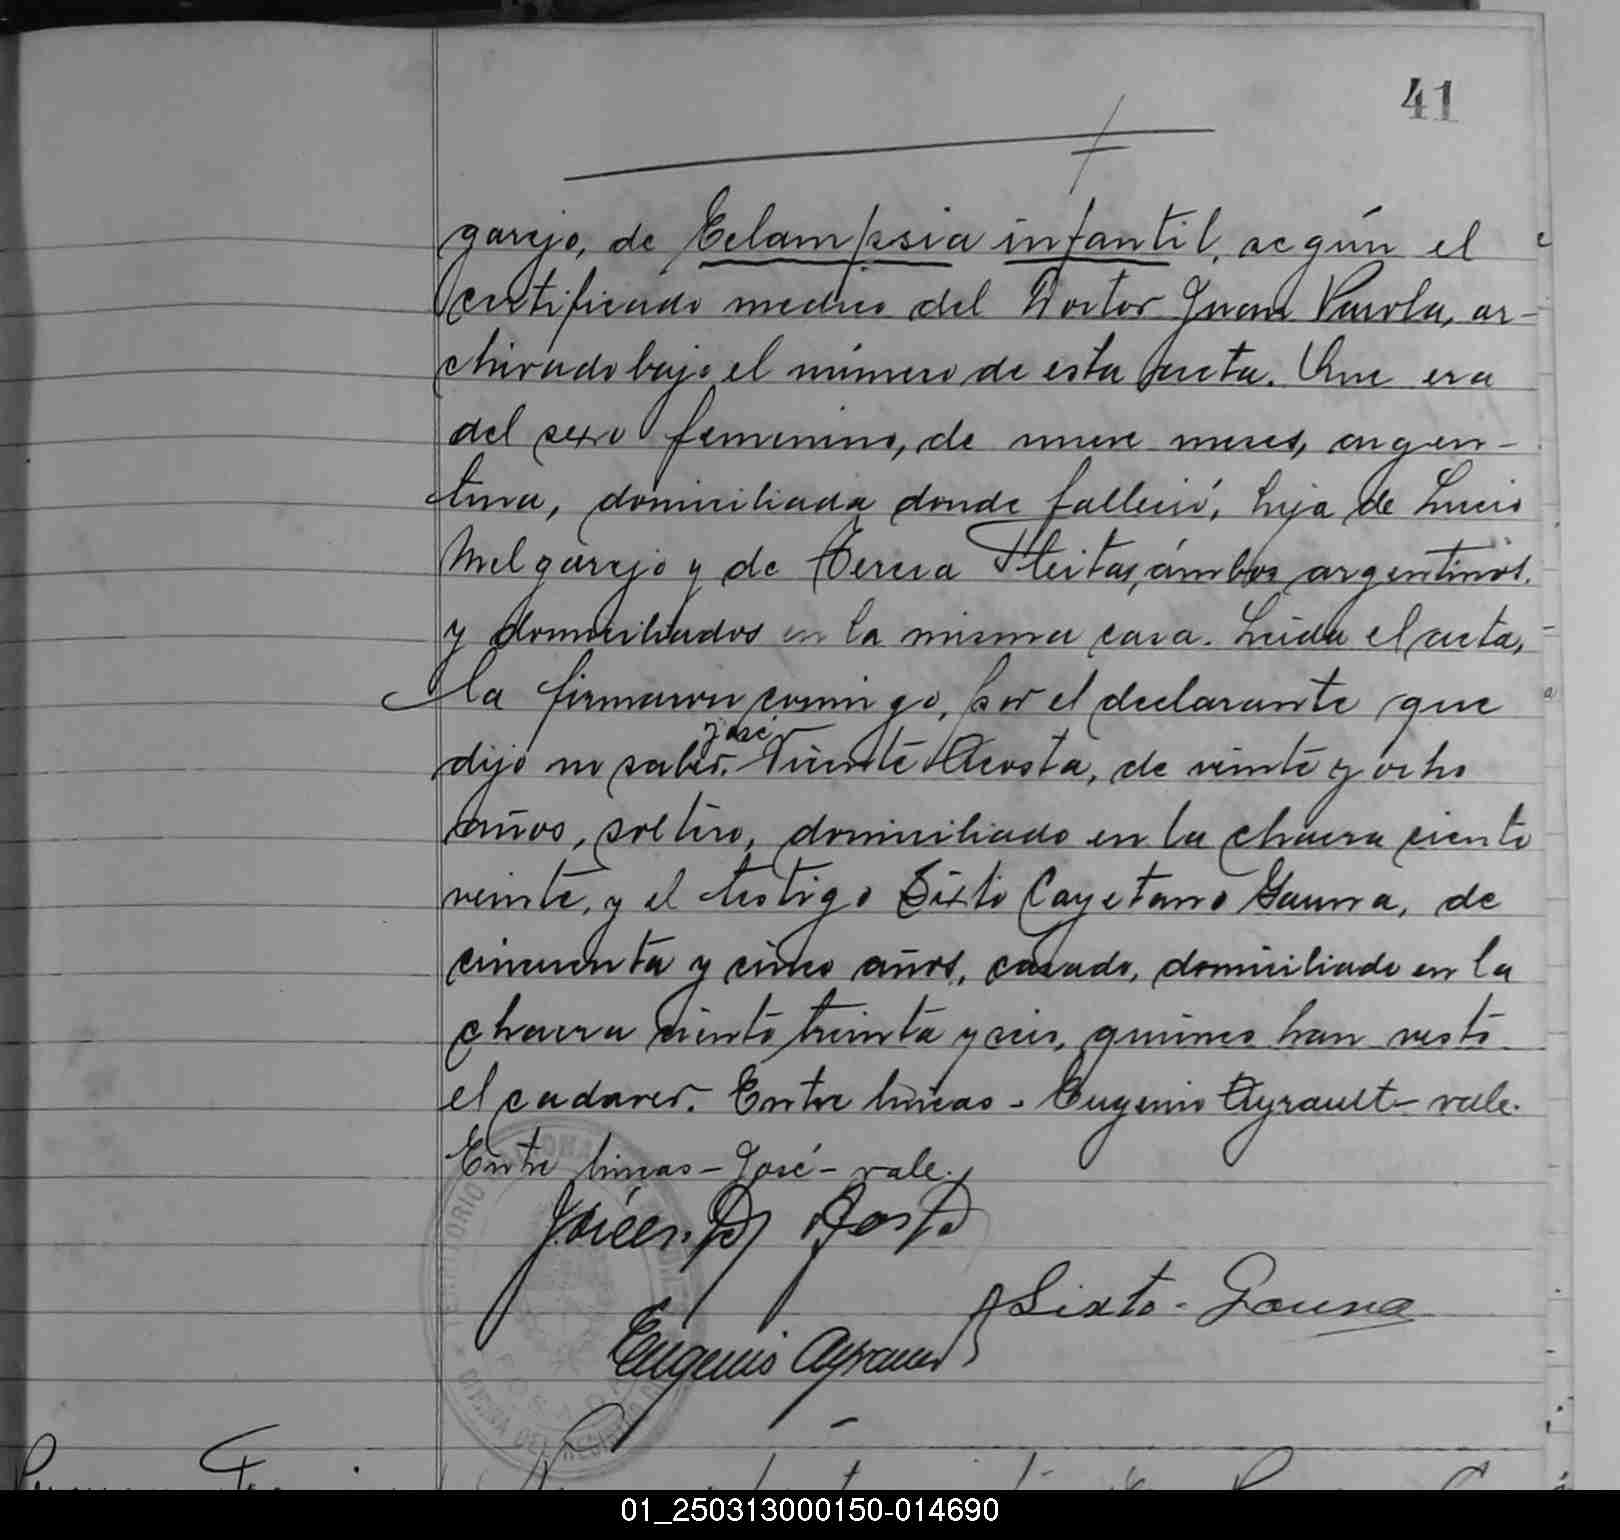 41
garejo, de Eclampsia infantil, según el
certificado medico del Doctor Juan Parola, ar-
chivado bajo el número de esta acta. Que era
del sexo femenino, de nueve meses, argen-
tina, domiciliada donde falleció, hija de Lucio
Melgarejo y de Teresa Fleitas, ámbos argentinos.
y domiciliados en la misma casa. Leida el acta,
la firmaron conmigo, por el declarante que
josé
dijo no saber. Vicente Acosta, de veinte y ocho
años, soltero, domiciliado en la chacra ciento
veinte, y el testigo Sixto Cayetano Gauna, de
cincuenta y cinco años, casado, domiciliado en la
chacra ciento treinta y seis, quienes han visto
el cadaver. Entre lineas - Eugenio Ayrault - vale.
Entre lineas - José - vale.
Vicente Acosta
Sixto - Gauna
Eugenio Ayrault
01_250313000150-014690